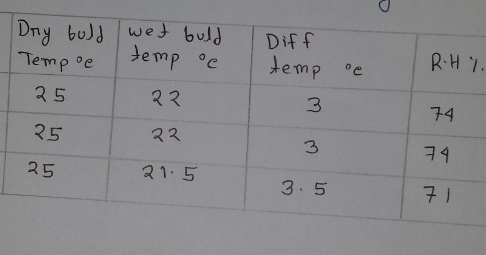 Dry buld wet buld Diff R.H %.
Temp °c temp °c temp °c
25 22 3 74
25 22 3 74
25 21.5 3.5 71